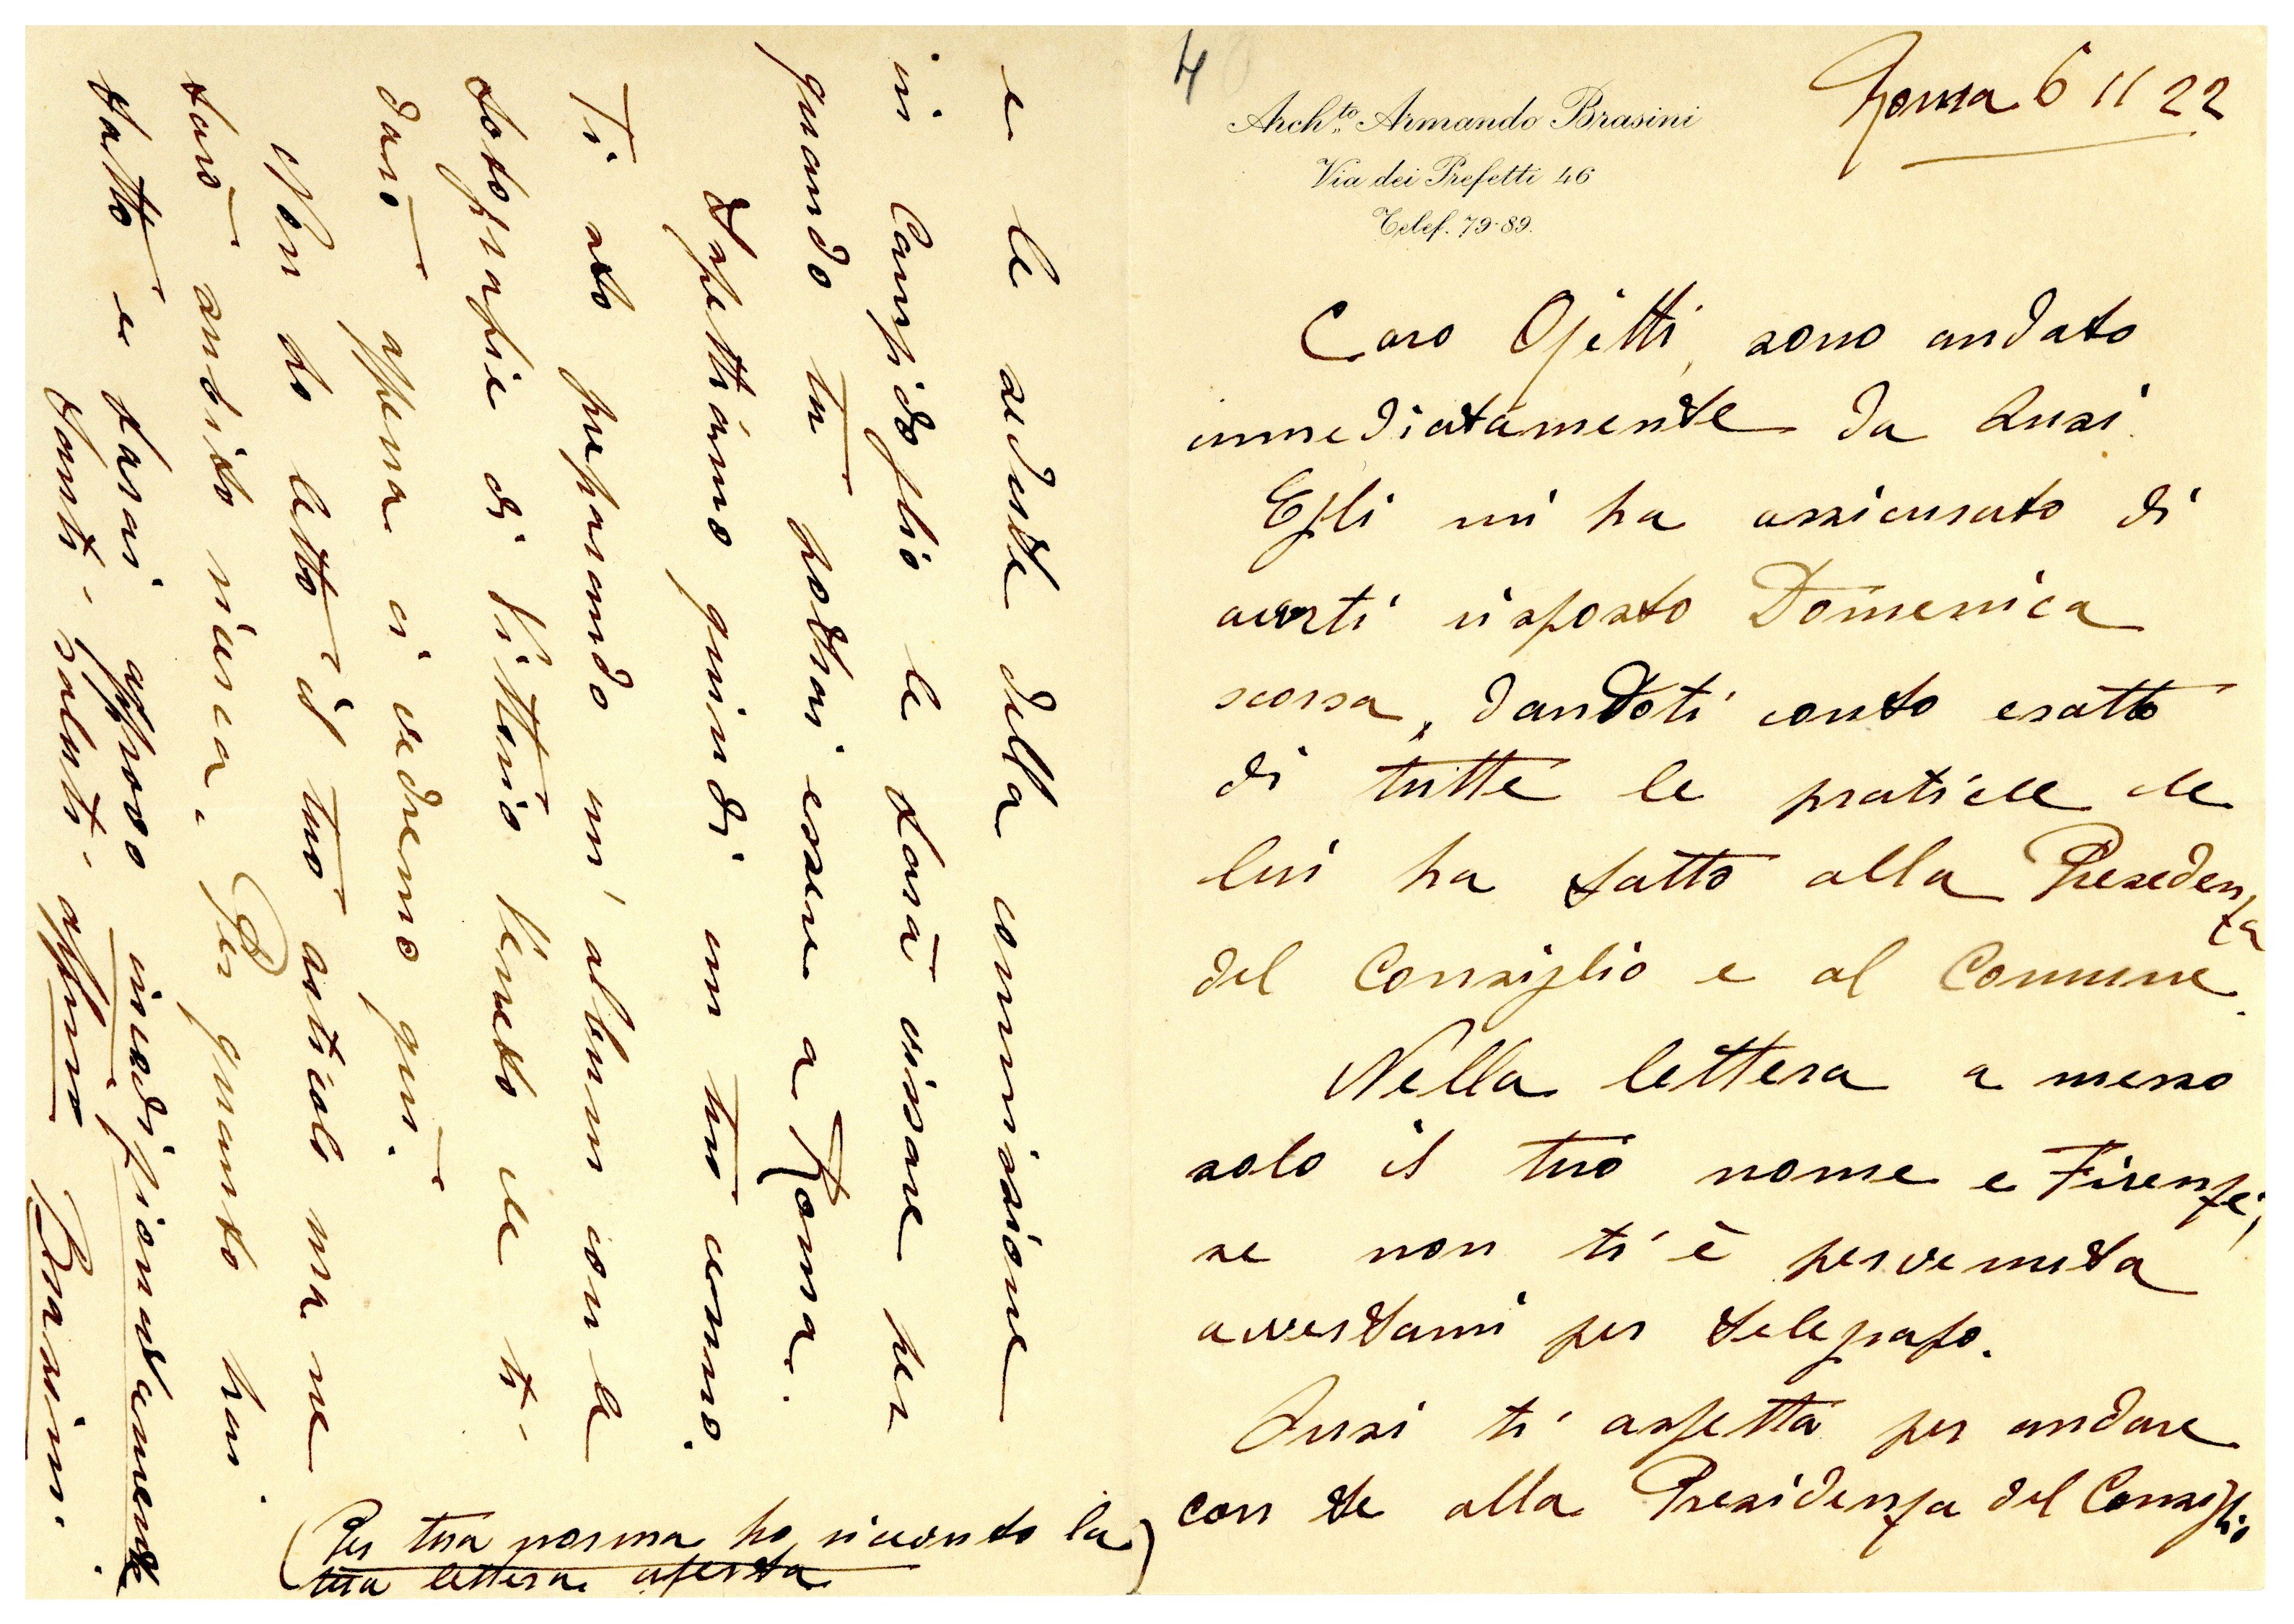 4
Roma 6 11 22
Arch.to Armando Brasini
Via dei Prefetti 46
Telef. 79-89.
Caro Ojetti, sono andato
immediatamente da Lusi.
Egli mi ha assicurato di
averti risposto Domenica
scorsa, dandoti conto esatto
di tutte le pratiche che
lui ha fatto alla Presidenza
del Consiglio e al Comune.
Nella lettera a messo
solo il tuo nome e Firenze,
se non ti è pervenuta
avvertami per telegrafo.
Lusi ti aspetta per andare
con te alla Presidenza del Consiglio
e le sedute della commissione
in Campidoglio le farà fissare per
quando tu potrai essere a Roma.
Aspettiamo quindi un tuo cenno.
Ti sto preparando un album con le
fotografie di Vittorio Veneto che ti
darò appena ci vedremo qui.
Non ho letto il tuo articolo ma ne
sarò ansioso riceverlo. Per quanto hai
fatto e farai approvo incondizionatamente
tanti saluti aff.mo Brasini.
(Per tua norma ho ricevuto la
tua lettera aperta)